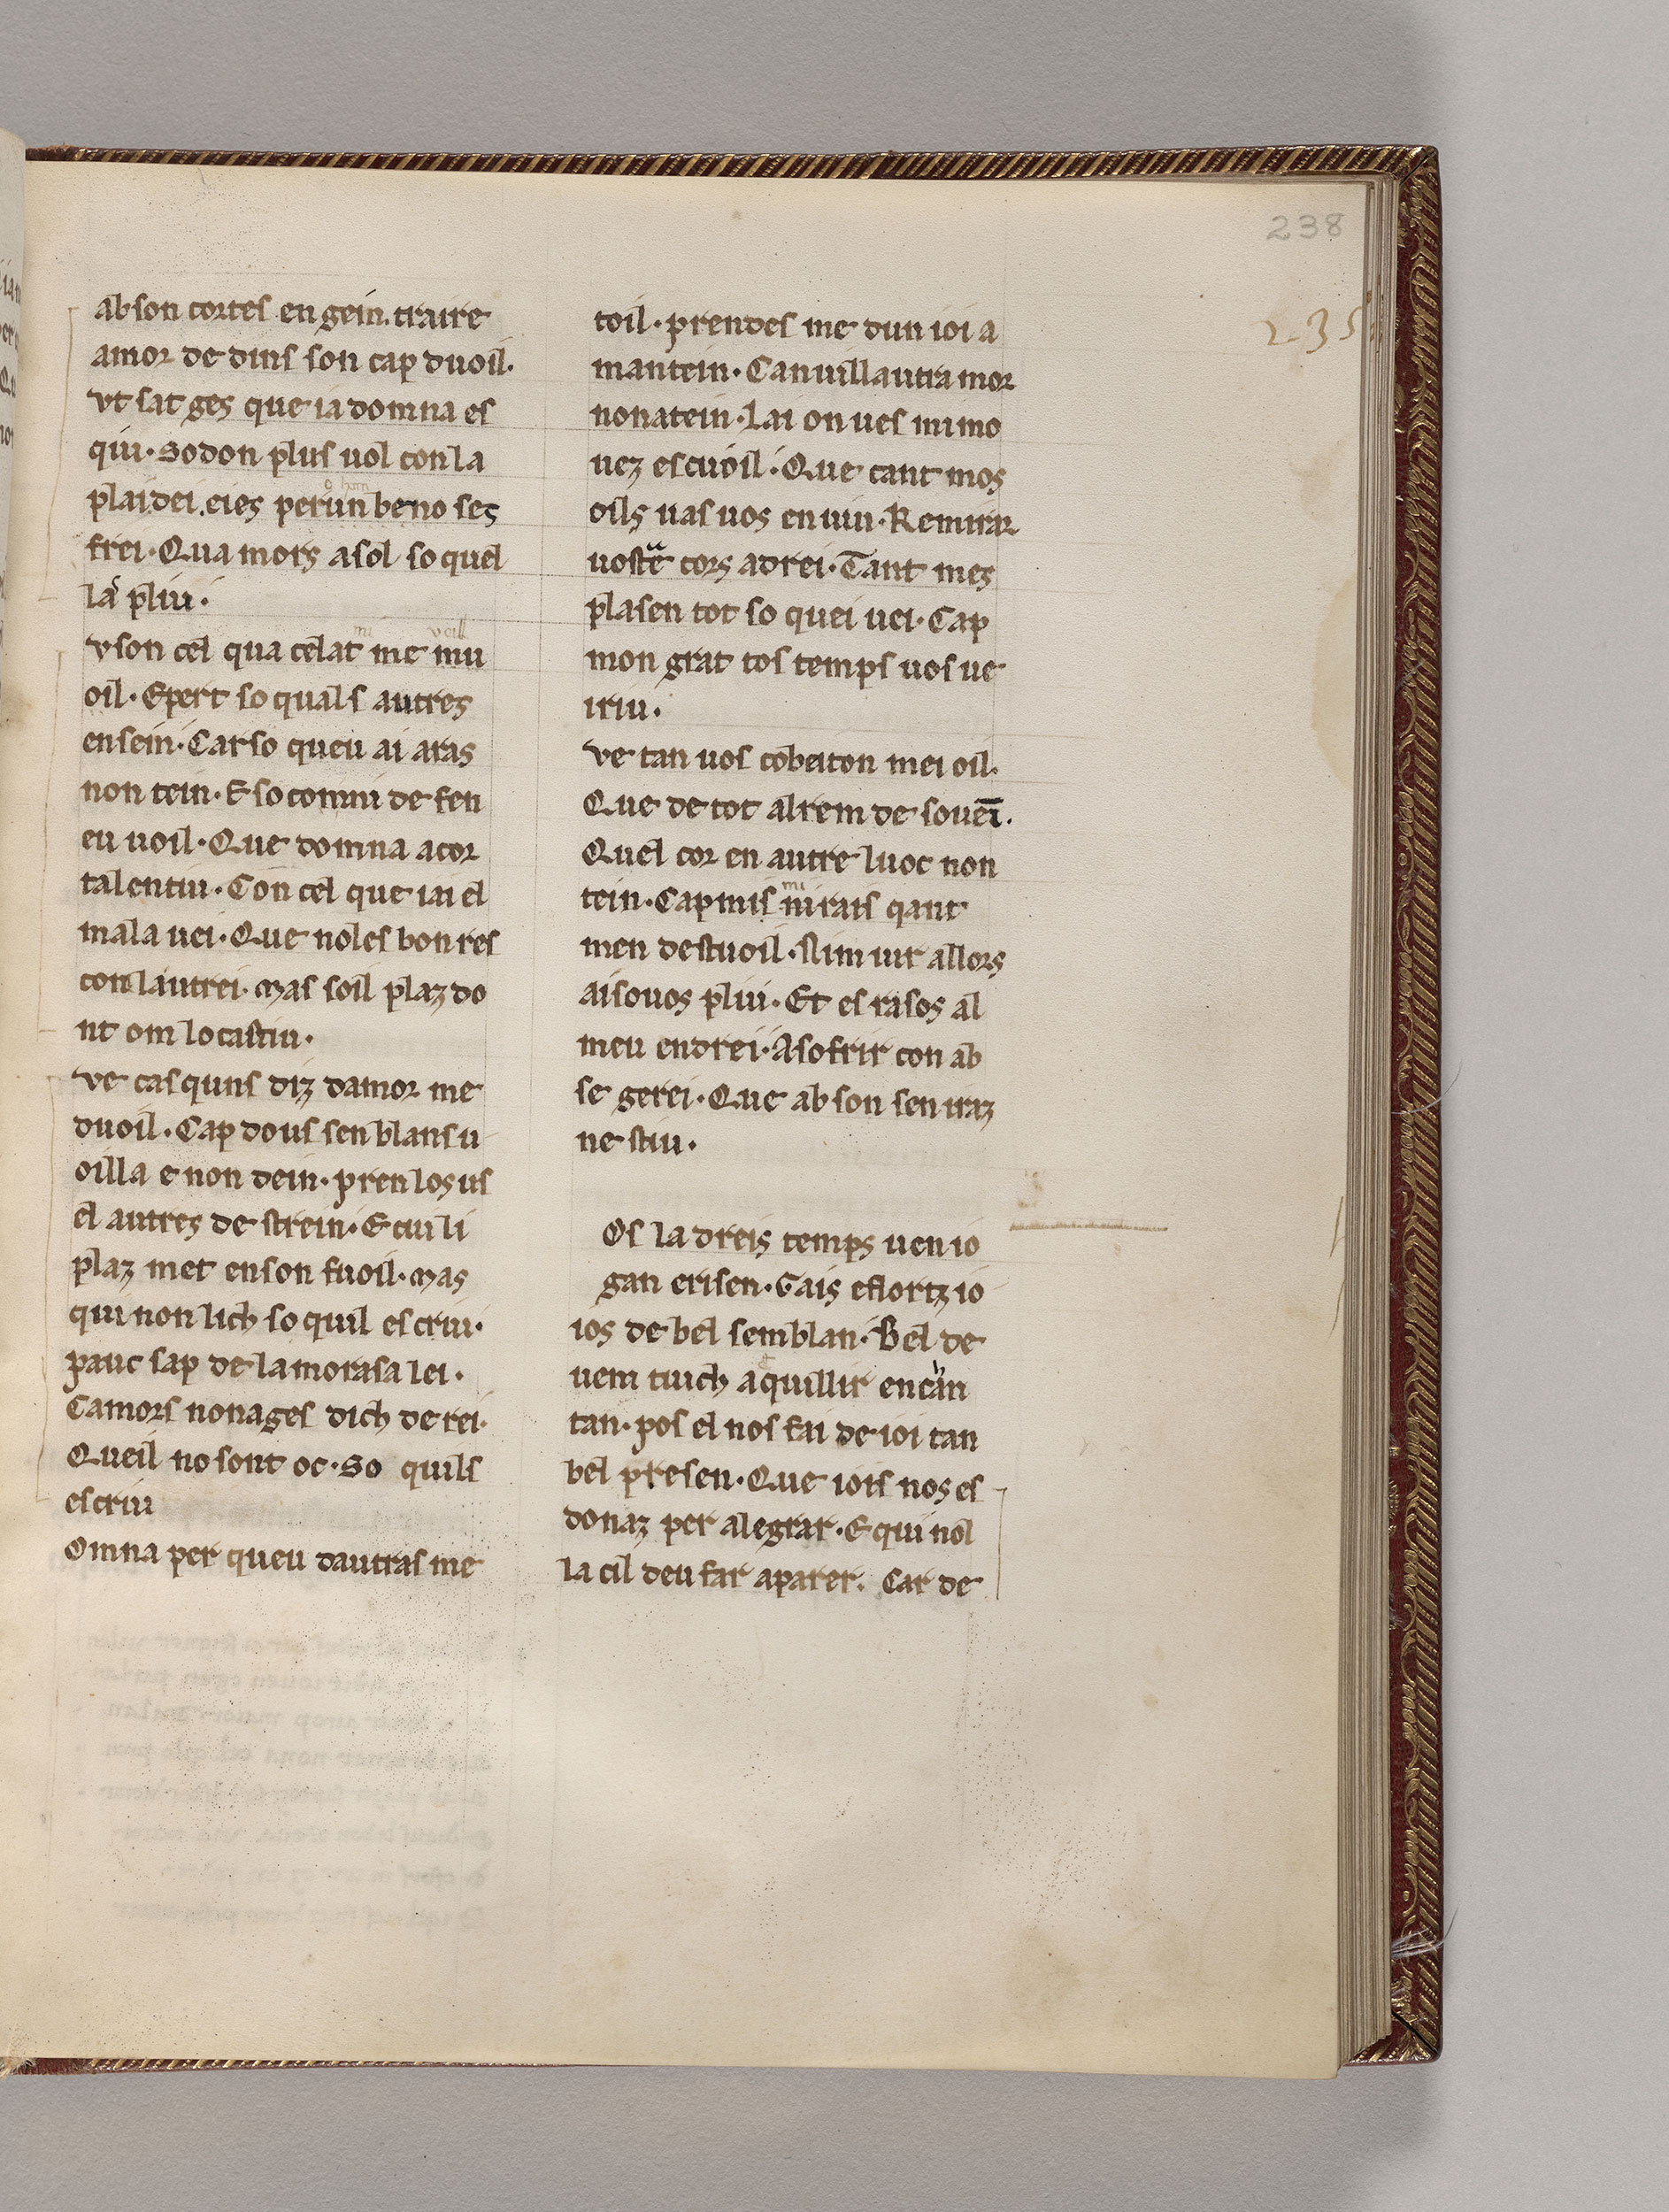 238
235
ab son cortes en gein. traire
amor de dins son cap duoil.
vt sat ges que ia domna es
qiu. So don plus uol con la
plai dei. eies per un be no ses
frei. Qua mors a sol so quel
la pliu.
v son cel qua celat me mu
mi voill
oil. E pert so quals autres
ensein. Car so queu ai aras
non tein. E so comni de fen
eu uoil. Que domna a cor
talentiu. Con cel que iai el
mala uei. Que noles bon res
con lautrei. Mas soil plaz do
nt om lo castiu.
ve cas quns diz damor me
duoil. Cap dous senblans u
oilla e non dein. pren los us
el autres de strein. E cui li
plaz met en son fuoil. Mas
qui non lich so quil escriu.
pauc sap de lamor a sa lei.
Camors non a ges dich de rei.
Queil no sont oc. So quils
escriu
Omna per queu dautras me
toil. prendes me dun ioi a
mantein. Can uill autra mor
non atein. Lai on ues mi mo
uez escuoil. Que cant mos
oils uas uos en uiu. Remirar
uostre cors adrei. Tant mes
plasen tot so quei uei. Cap
mon grat tos temps uos ue
iriu.
ve tan uos cobeiton mei oil.
Que de tot al rem de souei.
Quel cor en autre luoc non
tein. Cap mis ni rais qant
mi
men destuoil. Nim uir allors
aiso uos pliu. Et es rasos al
meu endrei. A sofrir con ab
se gerei. Que ab son sen iraz
ne stiu.
Os la dreis temps uen io
gan e risen. Gais e flortz io
ios de bel semblan. Bel de
uem tuich aquillir en can
tan. pos el nos fai de ioi tan
bel presen. Que iois nos es
donaz per alegrar. E qui nol
la cil deu far aparer. Car de